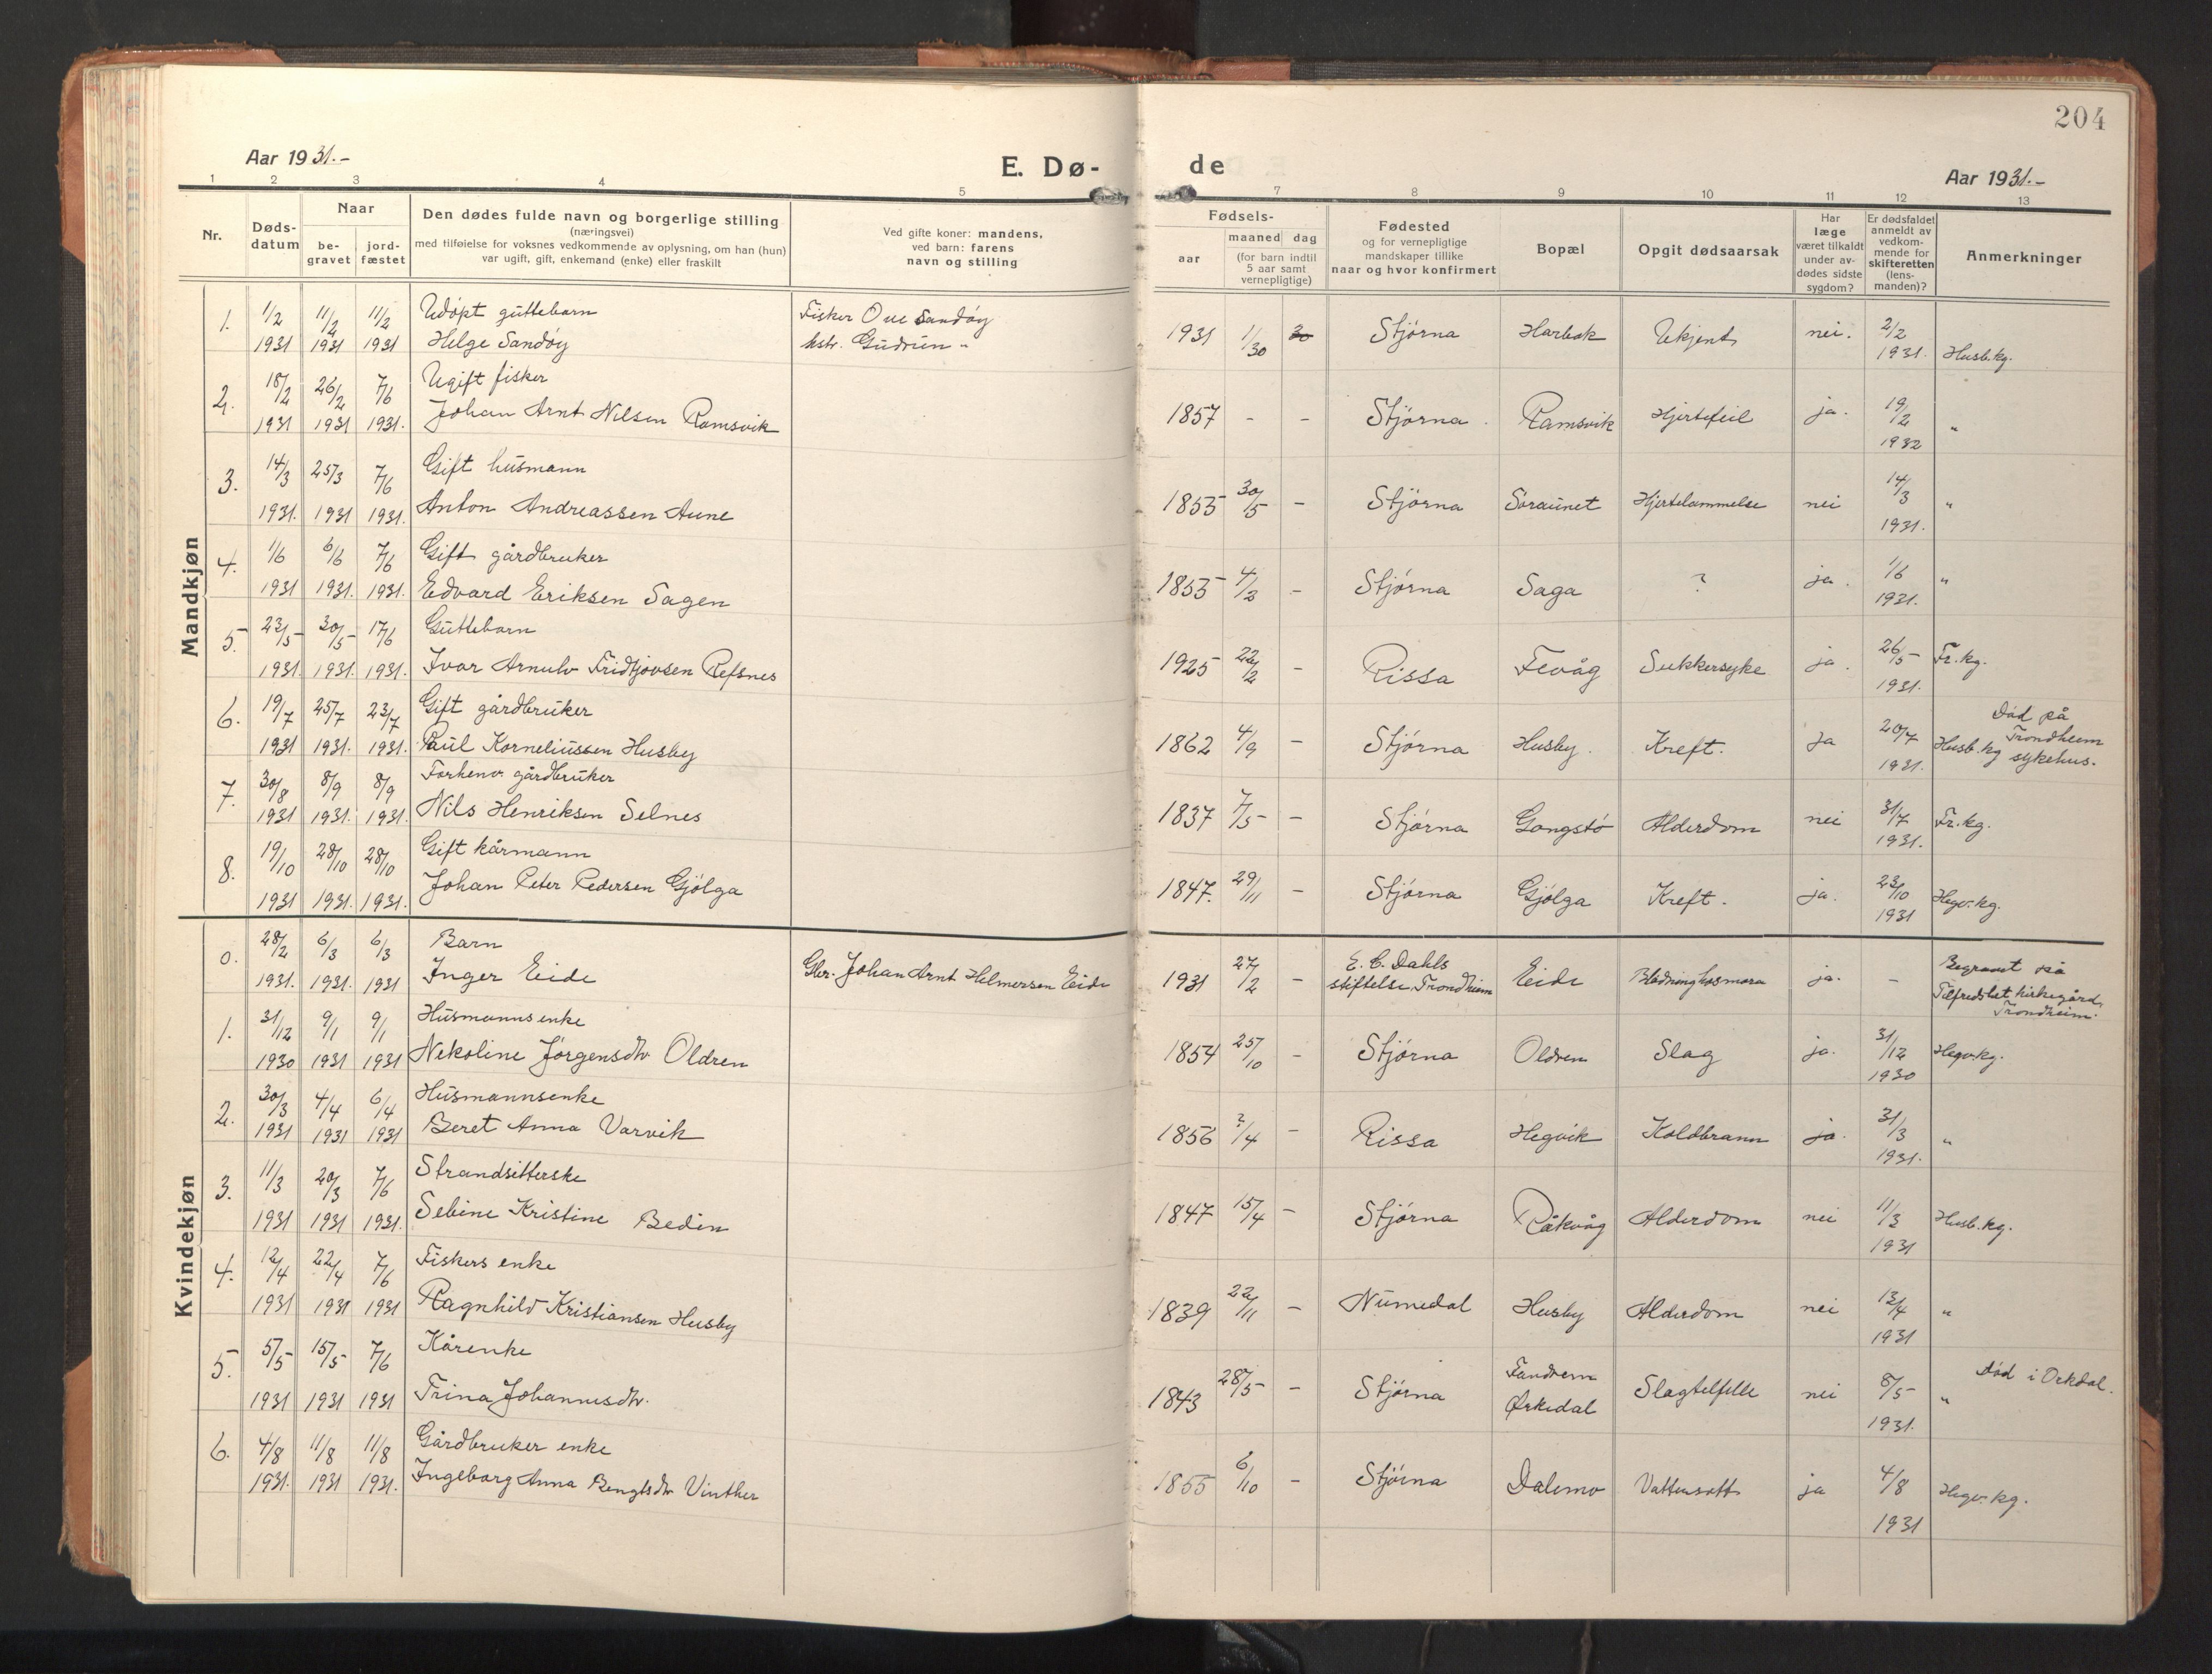 204
Aar 1931.-
E. Dø-
de
Aar 1931.-
1 2 3 4 5 7 8 9 10 11 12 13
Nr.
Døds-
datum
Naar
be-
gravet
jord-
fæstet
Den dødes fulde navn og borgerlige stilling
(næringsvei)
med tilføielse for voksnes vedkommende av oplysning, om han (hun)
var ugift, gift, enkemand (enke) eller fraskilt
Ved gifte koner: mandens,
ved barn: farens
navn og stilling
Fødsels-
aar
maaned dag
(for barn indtil
5 aar samt
vernepligtige)
Fødested
og for vernepligtige
mandskaper tillike
naar og hvor konfirmert
Bopæl
Opgit dødsaarsak
Har
læge
været tilkaldt
under av-
dødes sidste
sygdom?
Er dødsfaldet
anmeldt av
vedkom-
mende for
skifteretten
(lens-
manden)?
Anmerkninger
Mandkjøn
1. 1/2 11/2 11/2 Udöpt guttebarn Fisker Ove Sandöy
1931 1931 1931 Helge Sandöy hstr. Gudrun "
1931 1/30 30 Stjörna Harbak Ukjent nei. 2/2 1931. Husb.kg.
2. 18/2 26/2 7/6 Ugift fisker
1931 1931 1931. Johan Arnt Nilsen Ramsvik
1857 - - Stjörna Ramsvik Hjertefeil ja. 19/2 1932 "
3. 14/3 25/3 7/6 Gift husmann
1931. 1931 1931. Anton Andreassen Aune
1855 30/5 - Stjörna Söraunet Hjertelammelse nei 14/3 1931. "
4. 1/6 6/6 7/6 Gift gårdbruker
1931 1931. 1931. Edvard Eriksen Sagen
1855 4/2 - Stjörna Saga ? ja. 1/6 1931. "
5. 23/5 30/5 17/6 Guttebarn
1931. 1931. 1931. Ivar Arnulv Fridtjovsen Refsnes
1925 22/2 - Rissa Fevåg Sukkersyke ja. 26/5 1931. Fr.kg.
6. 19/7 25/7 23/7 Gift gårdbruker
1931 1931. 1931. Paul Korneliussen Husby
1862 4/9 - Stjörna Husby. Kreft. ja 20/7 1931. Husb.kg
Död på
Trondheim
sykehus.
7. 30/8 8/9 8/9 Forhenv. gårdbruker
1931 1931. 1931. Nils Henriksen Selnes
1837 7/5 - Stjörna Gongstö Alderdom nei 31/7 1931. Fr.kg.
8. 19/10 28/10 28/10 Gift kårmann
1931 1931. 1931. Johan Peter Pedersen Gjölga
1847. 29/11 - Stjörna Gjölga Kreft. ja. 23/10 1931 Hegv.kg.
Kvindekjøn
0. 28/2 6/3 6/3 Barn
1931. 1931. 1931 Inger Eide Gbr. Johan Arnt Helmersen Eide
1931 27/2 - E. C. Dahls
stiftelse, Trondheim Eide ja. -
Begravet på
Tilfredshet kirkegård,
Trondheim.
1. 31/12 9/1 9/1 Husmannsenke
1930 1931 1931 Nekoline Jörgensdtr Oldren
1854 25/10 - Stjörna Oldren Slag ja. 31/12 1930 Hegv.kg.
2. 30/3 4/4 6/4 Husmannsenke
1931 1931 1931 Beret Anna Varvik
1856 ?/4 - Rissa Hegvik Koldbrann ja. 31/3 1931. "
3. 11/3 20/3 7/6 Strandsitterske
1931 1931 1931. Sebine Kristine Bedin
1847 15/4 - Stjörna Råkvåg Alderdom nei 11/3 1931 Husb.kg.
4. 12/4 22/4 7/6 Fiskers enke
1931 1931 1931 Ragnhild Kristiansen Husby
1839 22/11 - Numedal Husby Alderdom nei 13/4 1931 "
5. 5/5 15/5 7/6 Kårenke
1931 1931 1931 Trina Johannesdtr.
1843 28/5 - Stjörna Fandrem
Ørkedal Slagtelfelle nei 8/5 1931. " Död i Orkdal.
6. 4/8 11/8 11/8 Gårdbruker enke
1931. 1931 1931. Ingeborg Anna Bengtsdtr Vinther
1855 6/10 - Stjörna Dalemo Vattersott ja 4/8 1931 Hegv.kg.